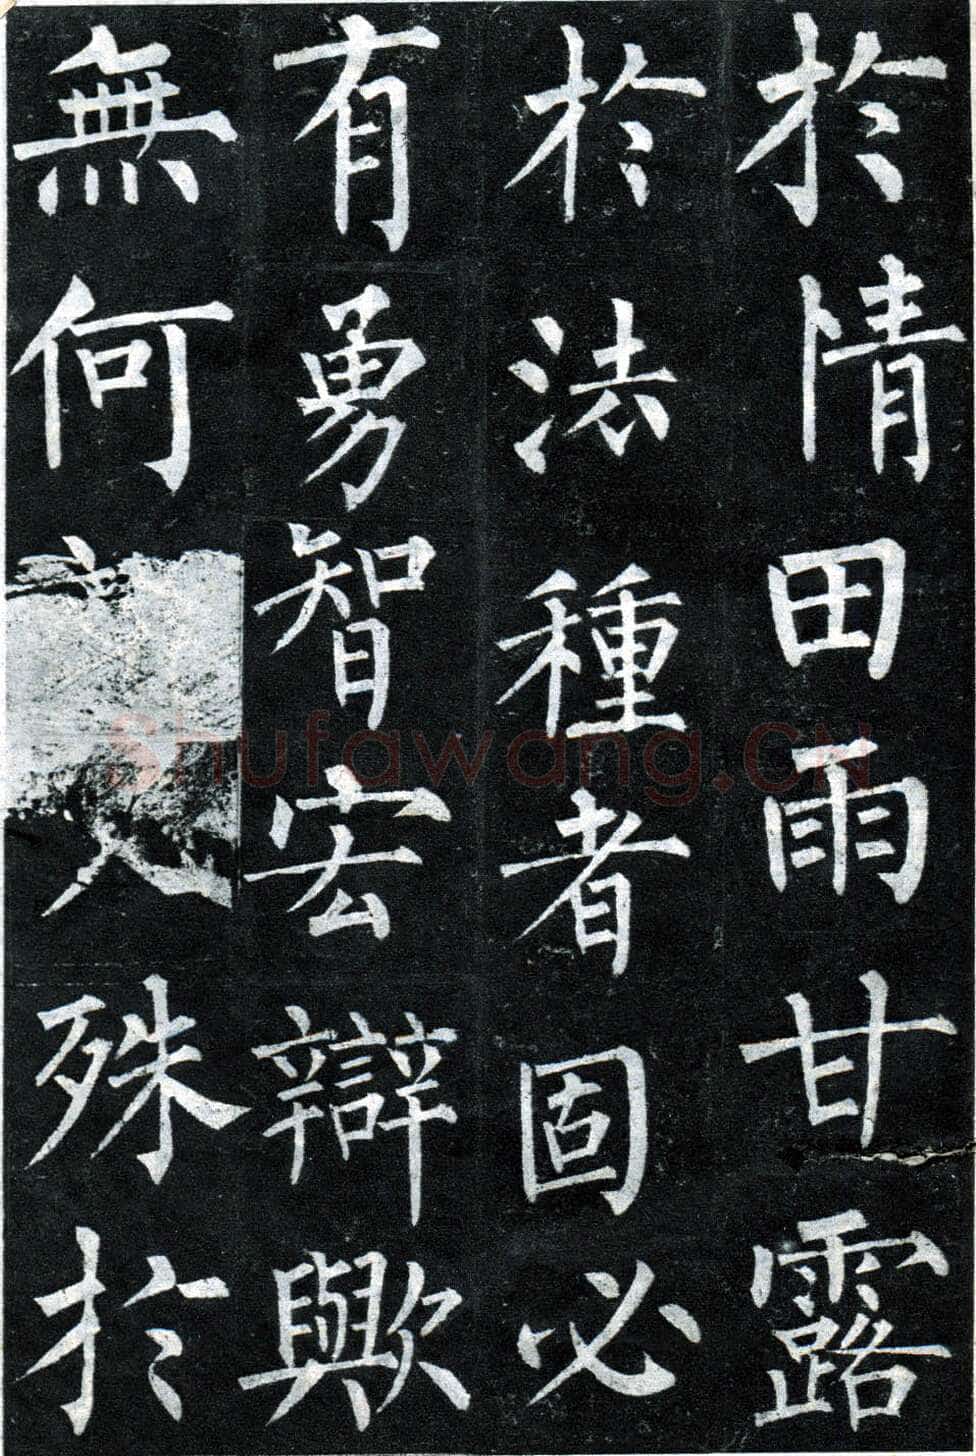 於情田雨甘露
於法種者固必
有勇智宏辯歟
無何殊於
Shufawang.CN